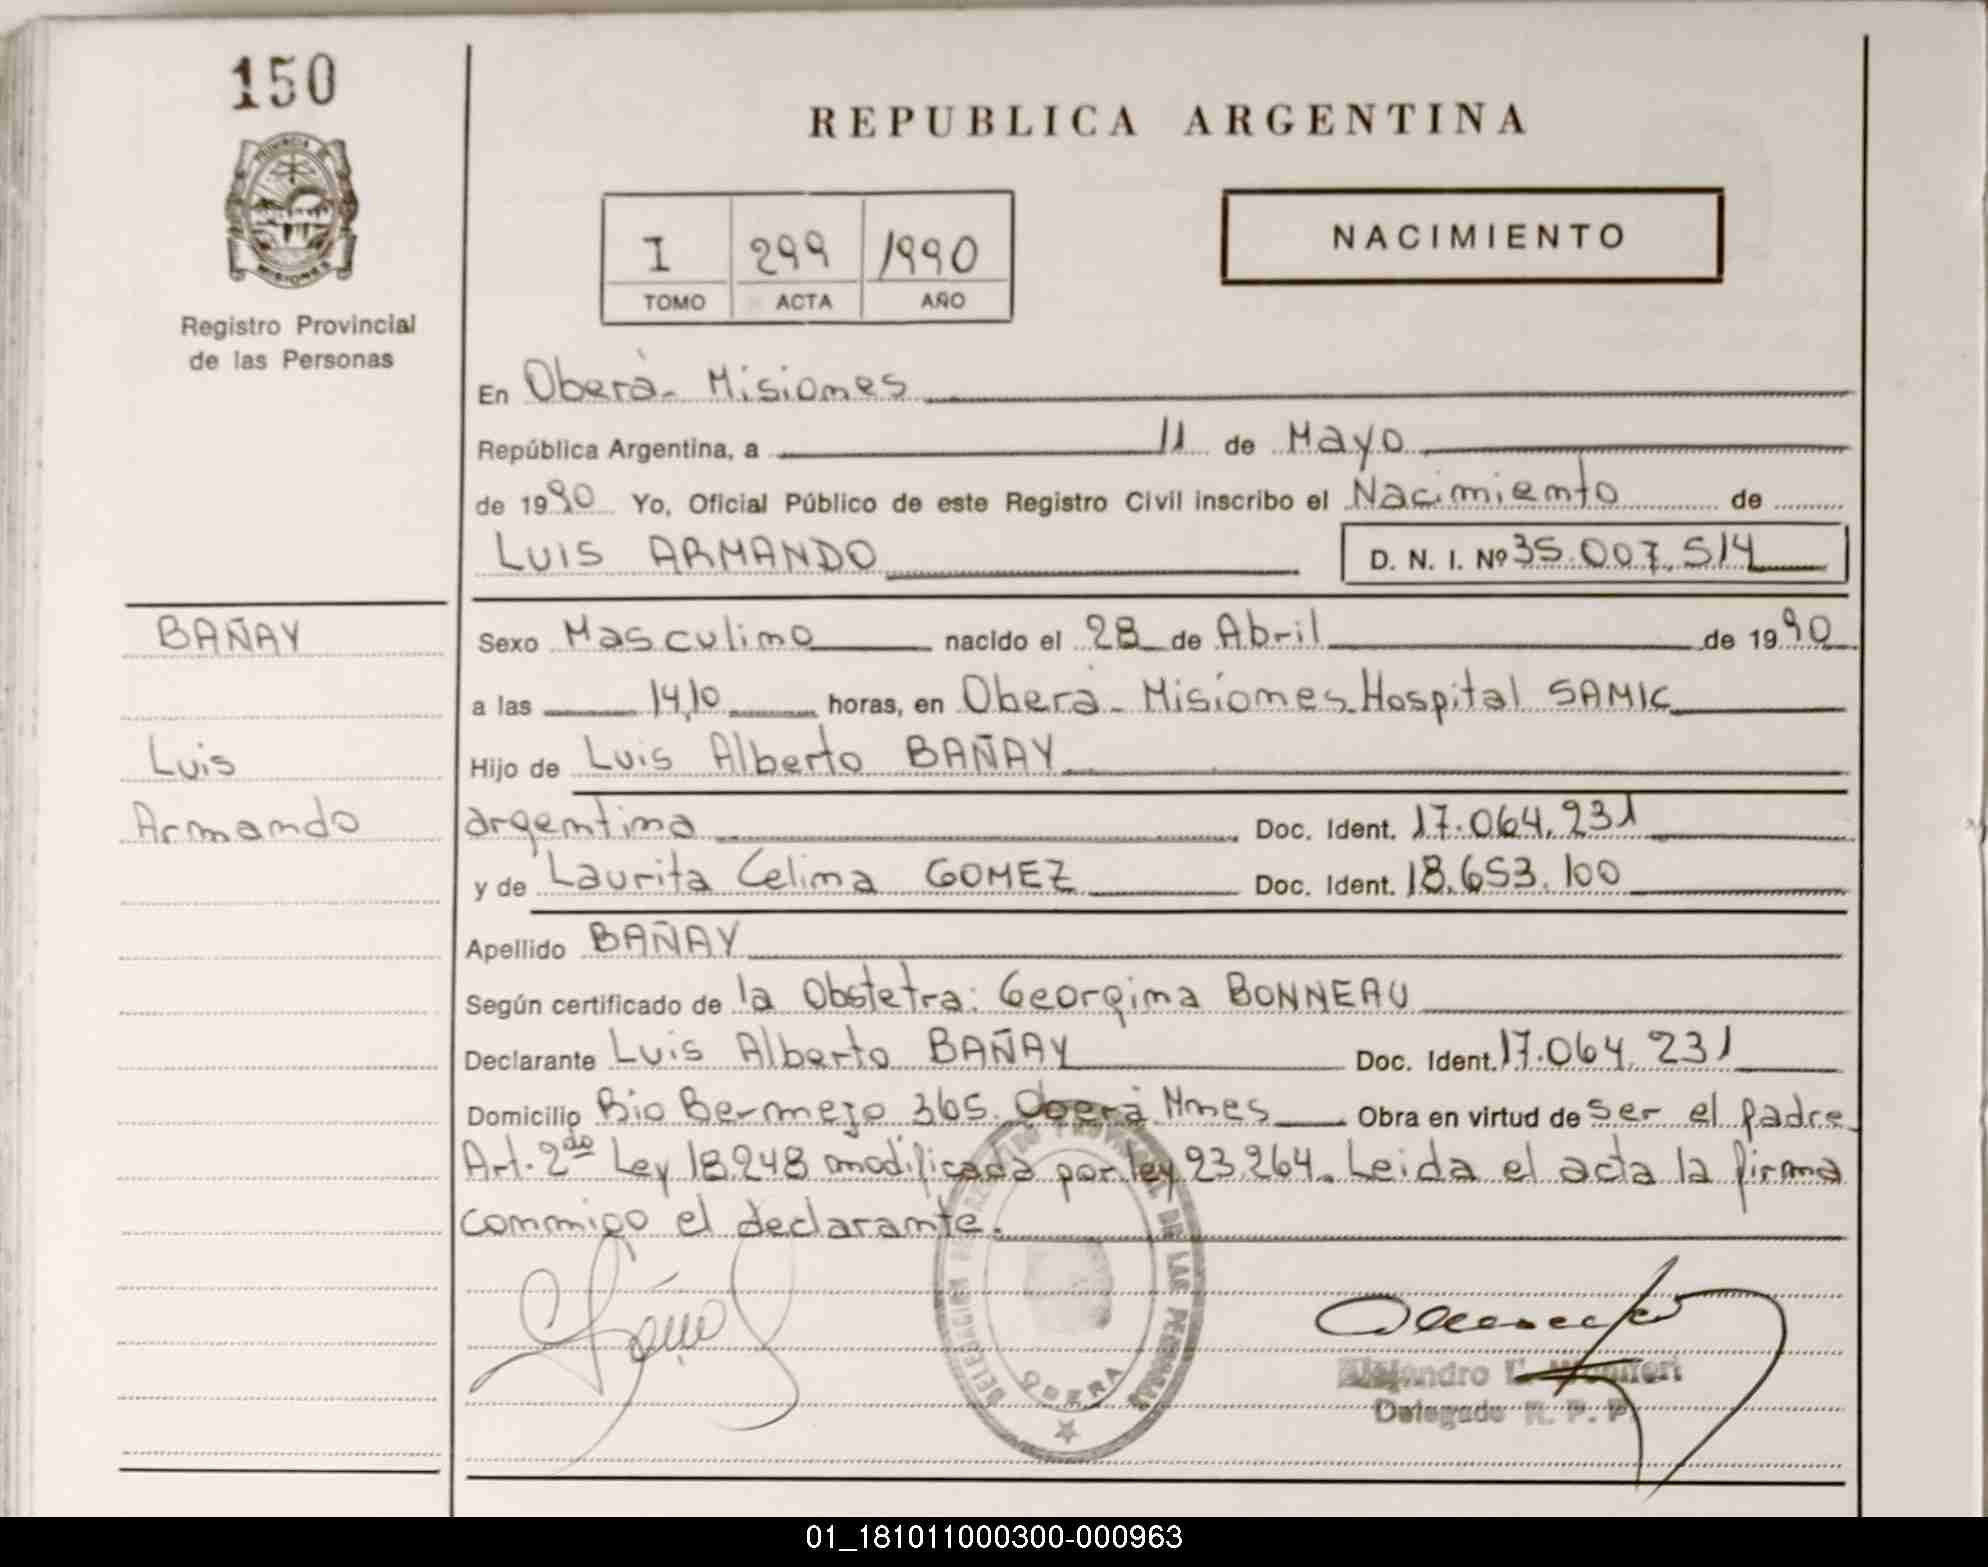 150
PROVINCIA DE
MISIONES
Registro Provincial
de las Personas
REPUBLICA ARGENTINA
I 299 1990
TOMO ACTA AÑO
NACIMIENTO
En Oberá - Misiones
República Argentina, a 11 de Mayo
de 1990 Yo, Oficial Público de este Registro Civil inscribo el Nacimiento de
LUIS ARMANDO D. N. I. Nº 35.007.514
BAÑAY
Luis
Armando
Sexo Masculino nacido el 28 de Abril de 1990
a las 14,10 horas, en Oberá - Misiones. Hospital SAMIC
Hijo de Luis Alberto BAÑAY
argentina Doc. Ident. 17.064.231
y de Laurita Celina GOMEZ Doc. Ident. 18.653.100
Apellido BAÑAY
Según certificado de la Obstetra: Georgina BONNEAU
Declarante Luis Alberto BAÑAY Doc. Ident. 17.064.231
Domicilio Bio Bermejo 365. Oberá Mnes Obra en virtud de ser el padre
Art. 2do Ley 18.248 modificada por ley 23.264. Leida el acta la firma
conmigo el declarante.
DELEGACION PROVINCIAL DE LAS PERSONAS
OBERA
Alejandro
Delegado R. P. P.
01_181011000300-000963